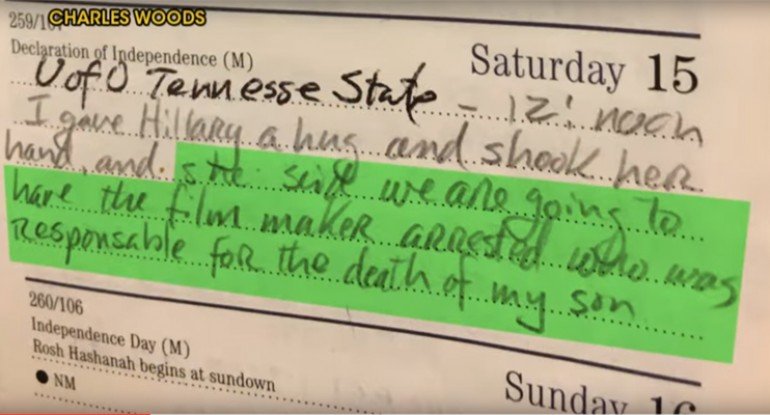 259/10
CHARLES WOODS
Declaration of Independence (M)
Saturday 15
U of O Tennesse State - 12: noon
I gave Hillary a hug and shook her
hand, and. she said we are going to
have the film maker arrested who was
responsable for the death of my son
260/106
Independence Day (M)
Rosh Hashanah begins at sundown
● NM
Sunday 16